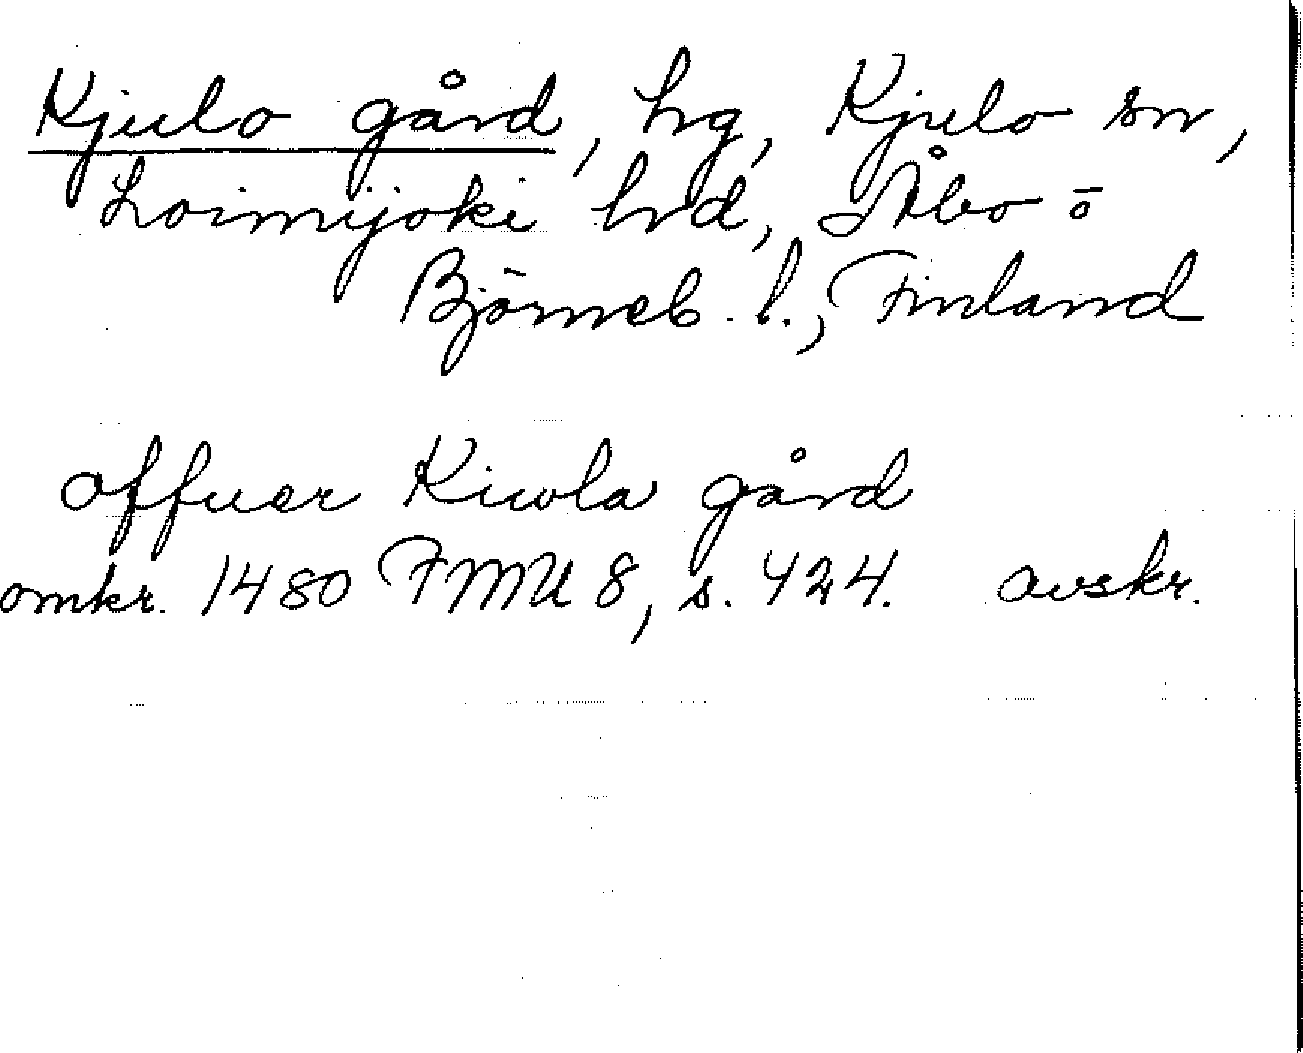 Kjulo gård, hg, Kjulo sn,
Loimijoki hrd, Åbo ö
Björneb. l., Finland
offuer Kiwla gård
omkr. 1480 FMU 8, s. 424. avskr.